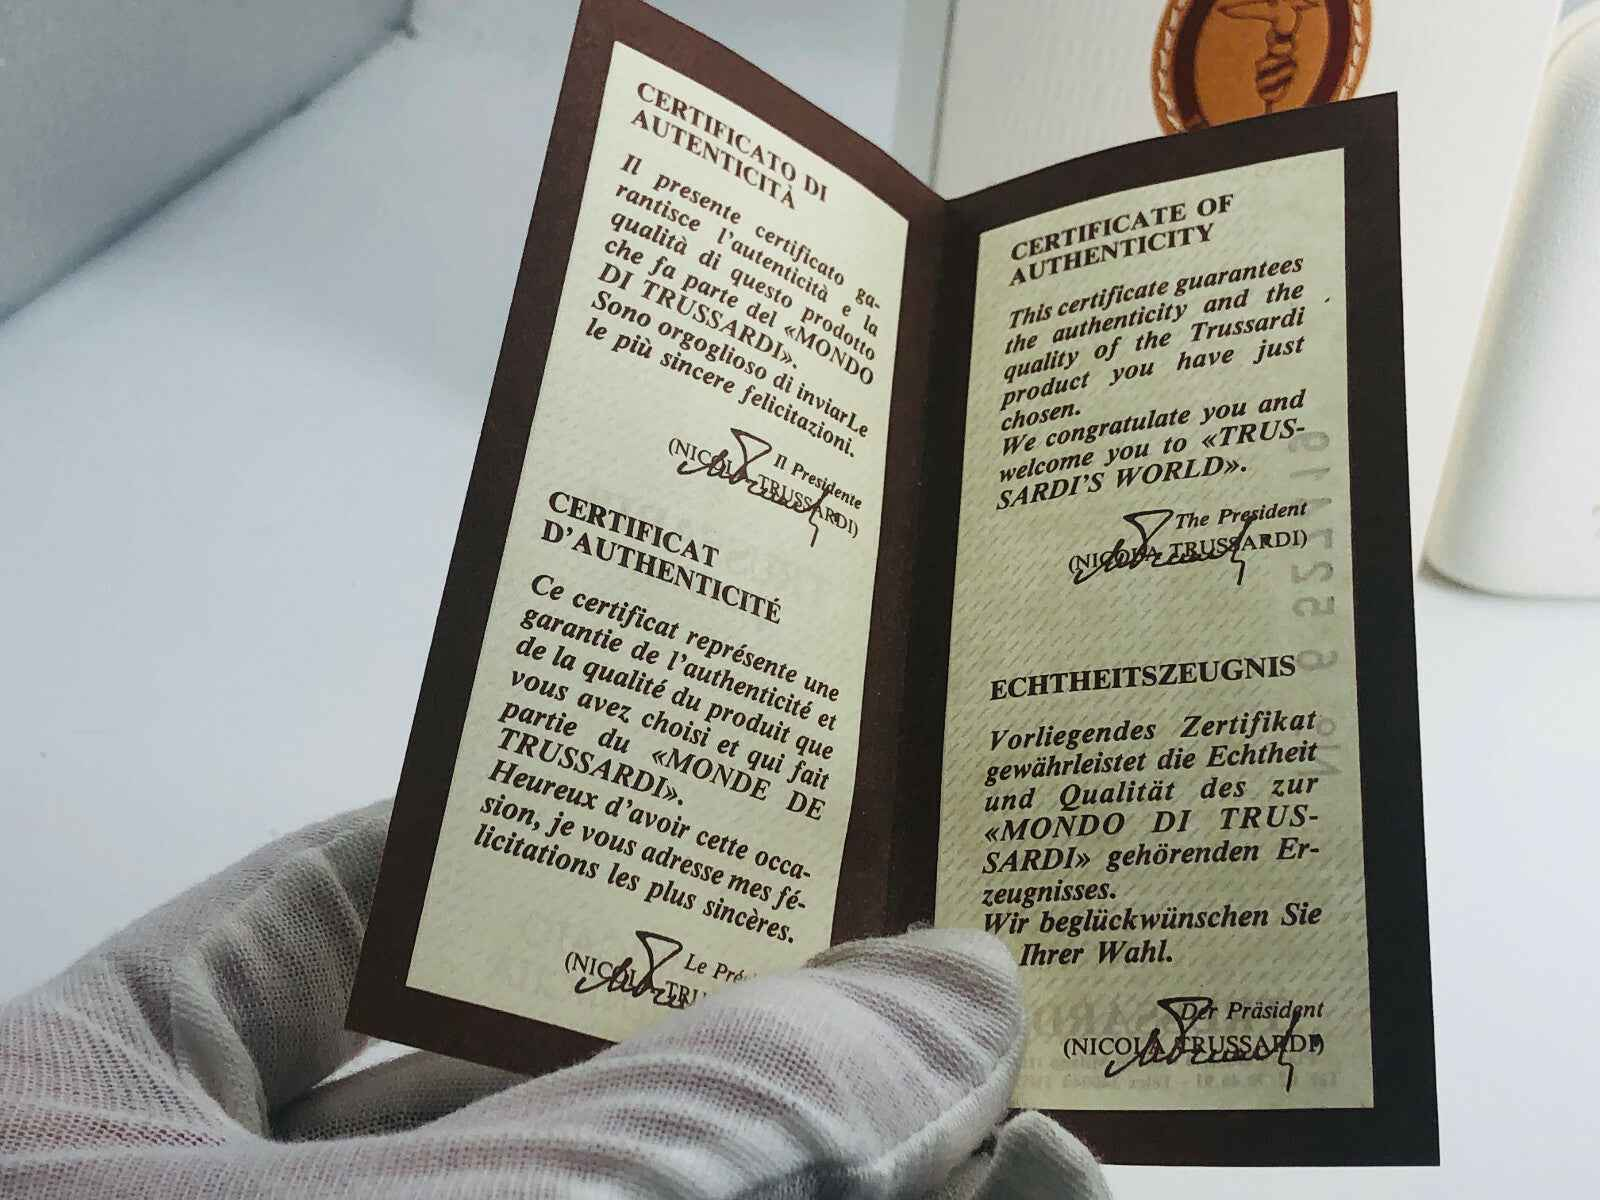 CERTIFICATO DI
AUTENTICITÀ
Il presente certificato ga-
rantisce l'autenticità e la
qualità di questo prodotto
che fa parte del «MONDO
DI TRUSSARDI».
Sono orgoglioso di inviarLe
le più sincere felicitazioni.
Il Presidente
(NICOLA TRUSSARDI)
CERTIFICAT
D'AUTHENTICITÉ
Ce certificat représente une
garantie de l'authenticité et
de la qualité du produit que
vous avez choisi et qui fait
partie du «MONDE DE
TRUSSARDI».
Heureux d'avoir cette occa-
sion, je vous adresse mes fé-
licitations les plus sincères.
Le
(NICOLA
CERTIFICATE OF
AUTHENTICITY
This certificate guarantees
the authenticity and the
quality of the Trussardi
product you have just
chosen.
We congratulate you and
welcome you to «TRUS-
SARDI'S WORLD».
The President
(NICOLA TRUSSARDI)
ECHTHEITSZEUGNIS
Vorliegendes Zertifikat
gewährleistet die Echtheit
und Qualität des zur
«MONDO DI TRUS-
SARDI» gehörenden Er-
zeugnisses.
Wir beglückwünschen Sie
Ihrer Wahl.
Der Präsident
(NICOLA TRUSSARDI)